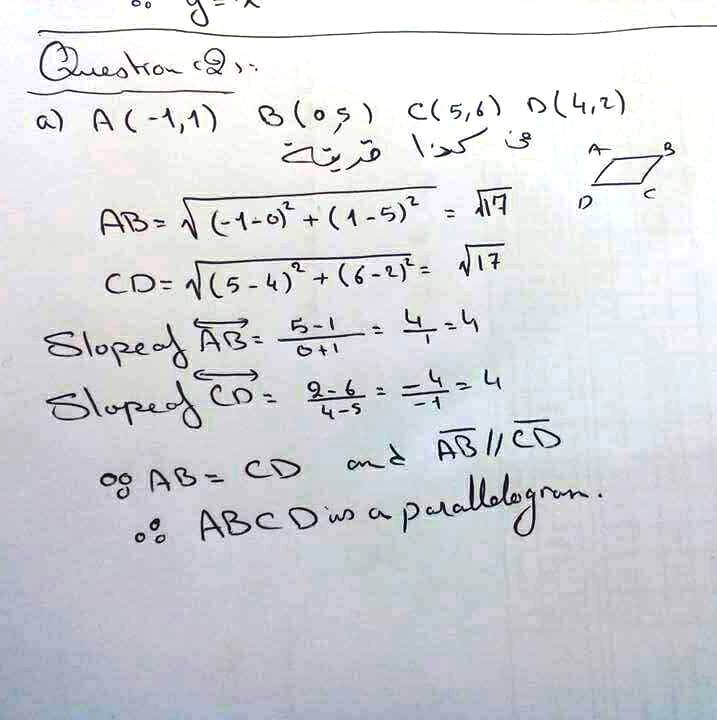 ∴ y = x
Question (2):
a) A(-1,1) B(0,5) C(5,6) D(4,2)
فى كذا طريقة
A B
D C
AB = √((-1-0)² + (1-5)²) = √17
CD = √((5-4)² + (6-2)²) = √17
Slope of AB = (5-1)/(0+1) = 4/1 = 4
Slope of CD = (2-6)/(4-5) = (-4)/(-1) = 4
∵ AB = CD and AB // CD
∴ ABCD is a parallelogram.